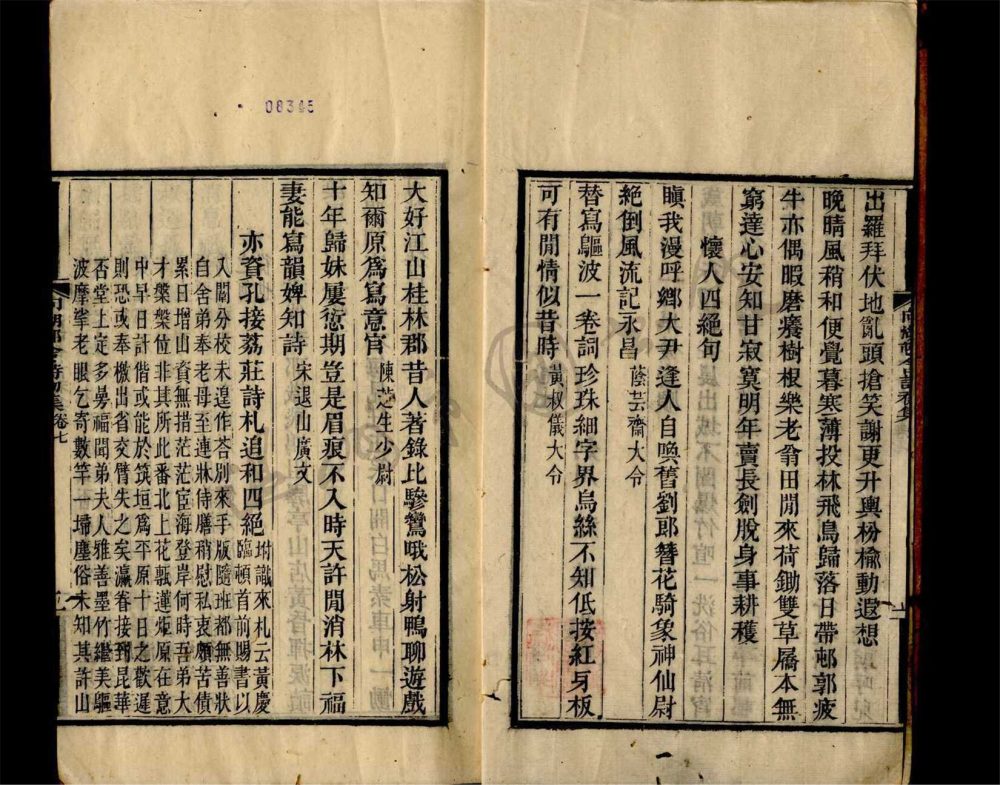 出羅拜伏地亂頭搶笑謝更升輿枌榆動遐想
晚晴風稍和便覺暮寒薄投林飛鳥歸落日帶邨郭疲
牛亦偶暇磨癢樹根樂老翁田閒來荷鋤雙草屩本無
窮達心安知甘寂寞明年賣長劍脫身事耕穫
懷人四絕句
瞋我漫呼鄉大尹逢人自喚舊劉郎簪花騎象神仙尉
絕倒風流記永昌 蔭芸齋大令
替寫鷗波一卷詞珍珠細字界烏絲不知低按紅牙板
可有閒情似昔時 黃叔儀大令
大好江山桂林郡昔人著錄比驂鸞哦松射鴨聊遊戲
知爾原爲寫意官 陳芝生少尉
十年歸妹屢愆期豈是眉痕不入時天許閒消林下福
妻能寫韻婢知詩 宋退山廣文
亦資孔接荔莊詩札追和四絕 坿識來札云黃慶
臨頓首前賜書以
入闈分校未遑作荅別來手版隨班都無善狀
自舍弟奉老母至連牀侍膳稍慰私衷願苦債
累日增山資無措茫茫宦海登岸何時吾弟大
才槃槃位非其所此番北上花甎蓮炬原在意
中早日計偕或能於筑垣爲平原十日之歡遲
則恐或奉檄出省交臂失之矣瀛眷接到昆華
否堂上定多勞福聞弟夫人雅善墨竹繼美鷗
波摩挲老眼乞寄數竿一埽塵俗未知其許山
卷七
08345